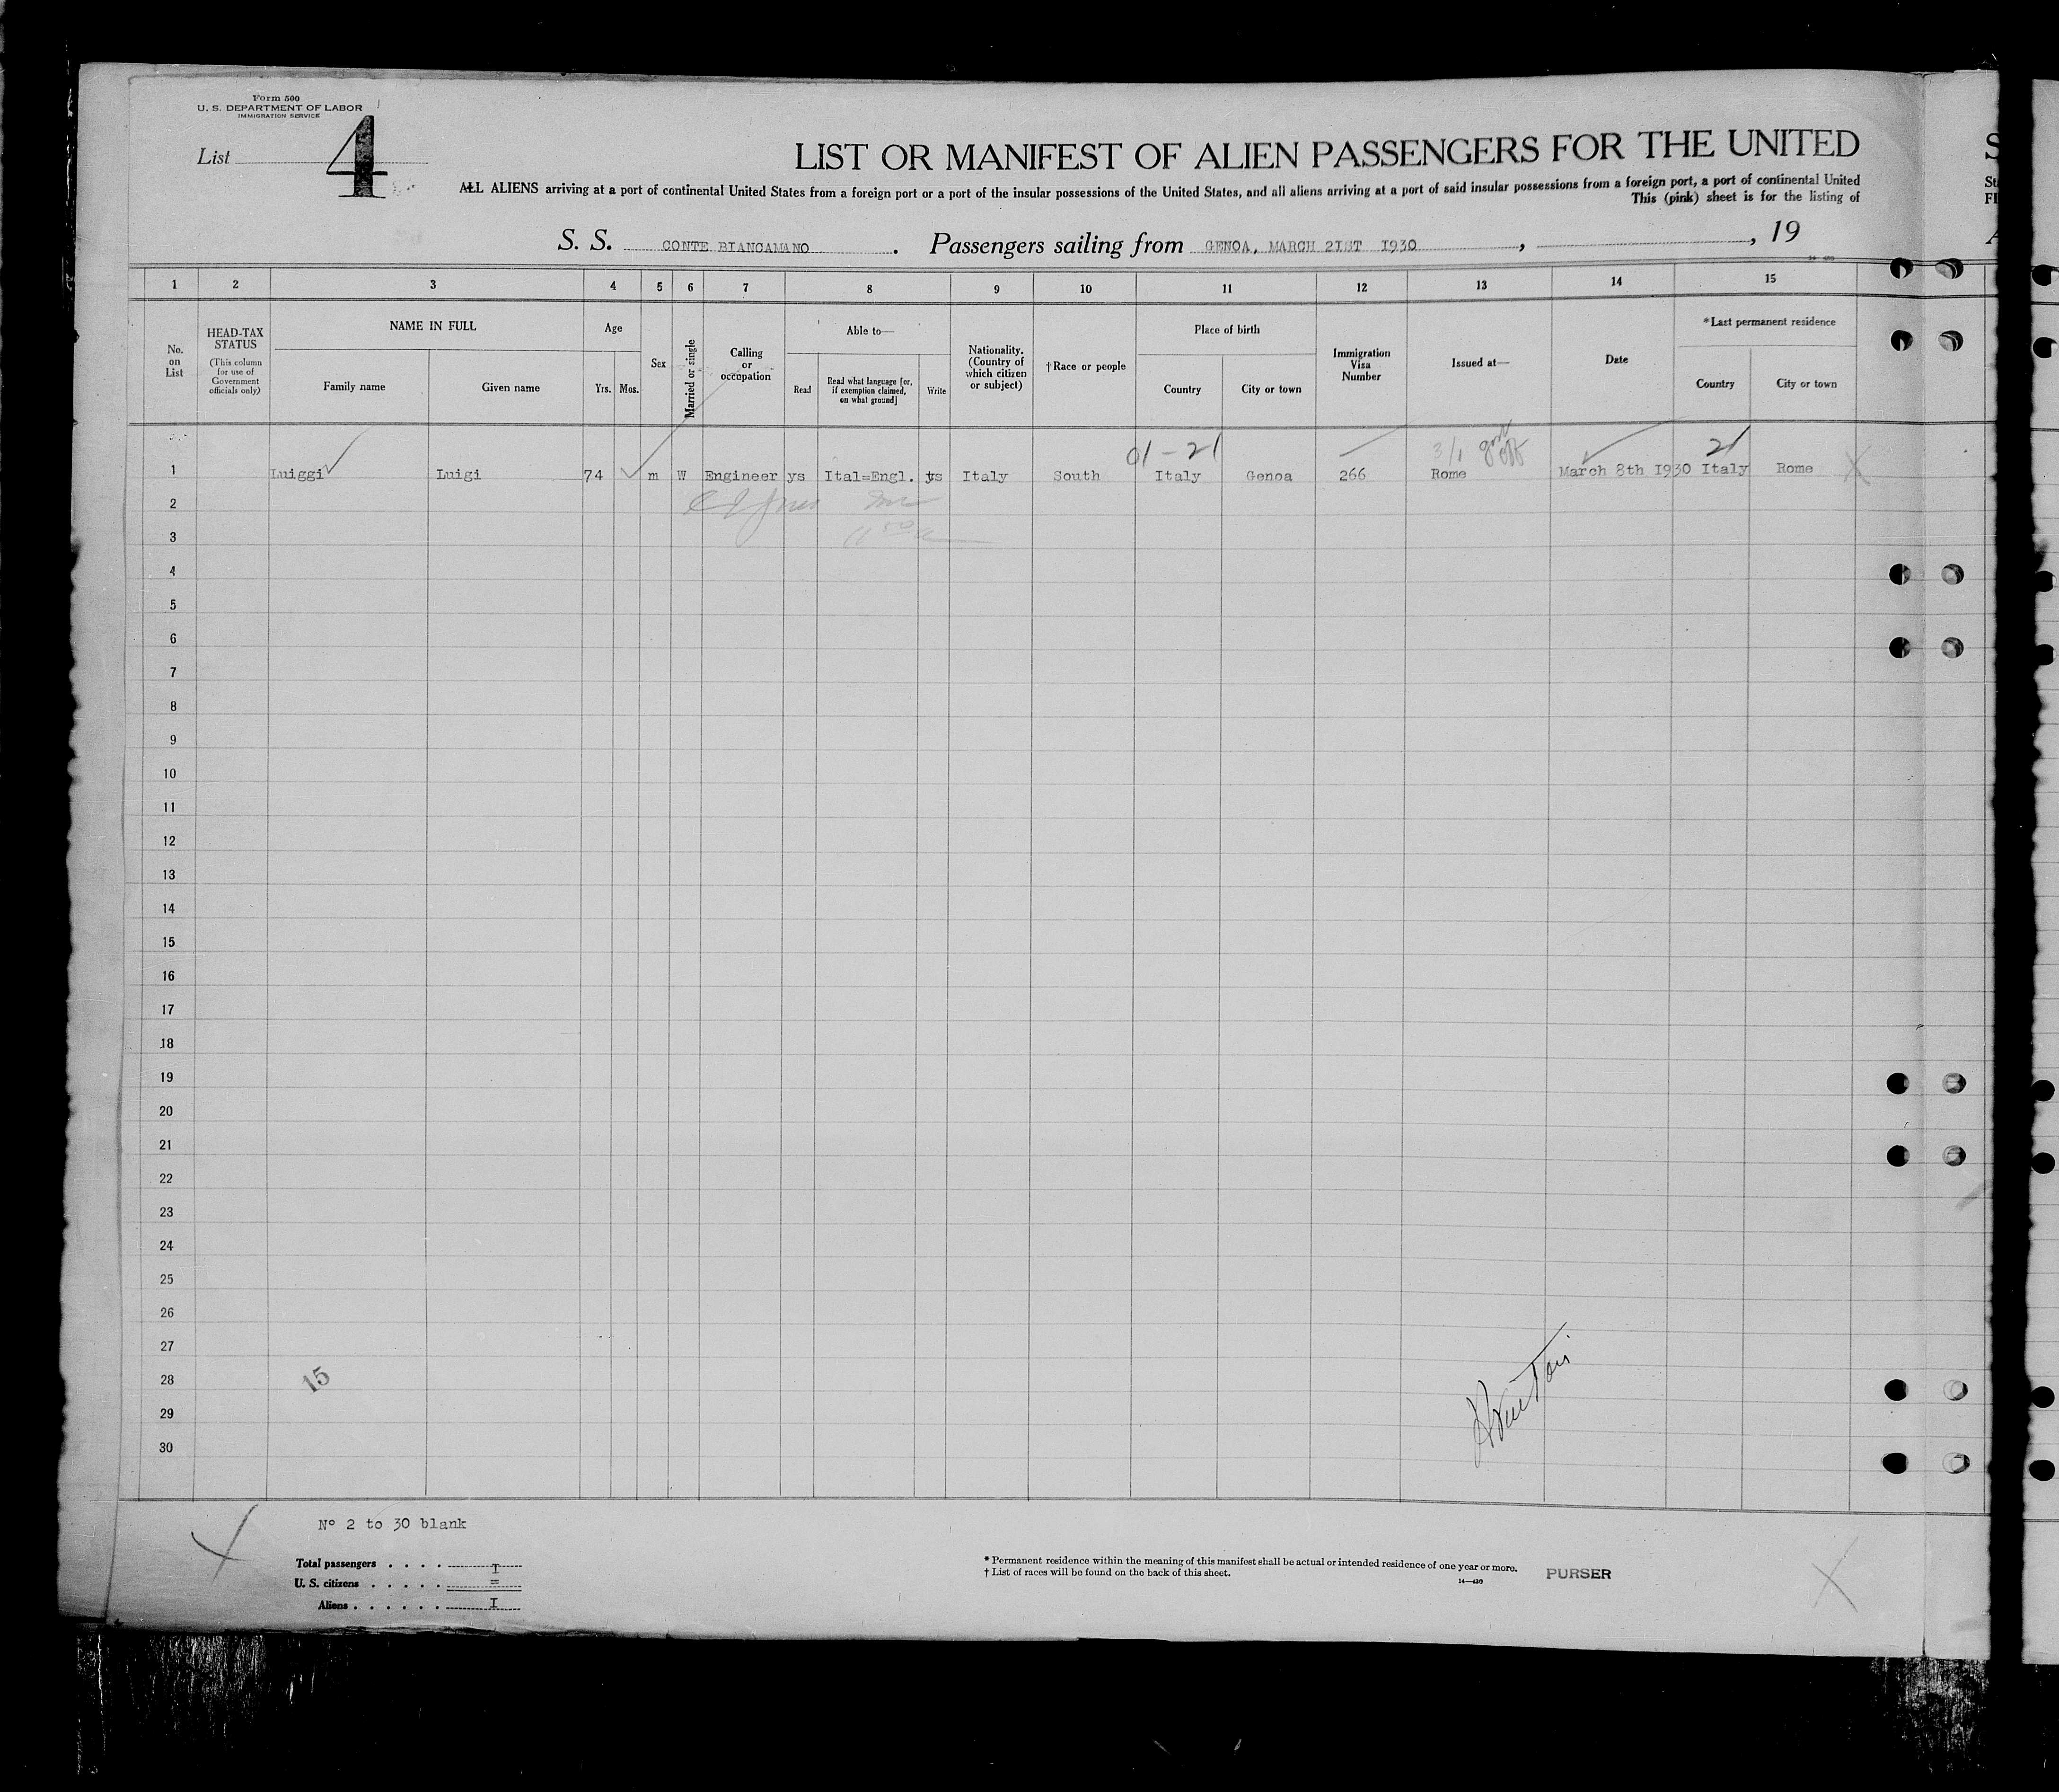 Form 500
U. S. DEPARTMENT OF LABOR
IMMIGRATION SERVICE
List 4
LIST OR MANIFEST OF ALIEN PASSENGERS FOR THE UNITED
ALL ALIENS arriving at a port of continental United States from a foreign port or a port of the insular possessions of the United States, and all aliens arriving at a port of said insular possessions from a foreign port, a port of continental United
This (pink) sheet is for the listing of
S. S. CONTE BIANCAMANO. Passengers sailing from GENOA, MARCH 21ST 1930, , 19
1 2 3 4 5 6 7 8 9 10 11 12 13 14 15
No. on List
HEAD-TAX STATUS
(This column for use of Government officials only)
NAME IN FULL
Family name Given name
Age
Yrs. Mos.
Sex
Married or single
Calling or occupation
Able to—
Read
Read what language [or, if exemption claimed, on what ground]
Write
Nationality. (Country of which citizen or subject)
†Race or people
Place of birth
Country City or town
Immigration Visa Number
Issued at—
Date
*Last permanent residence
Country City or town
01-21 3/1 21
1 Luiggi Luigi 74 m W Engineer ys Ital=Engl. ys Italy South Italy Genoa 266 Rome March 8th 1930 Italy Rome X
2
3
4
5
6
7
8
9
10
11
12
13
14
15
16
17
18
19
20
21
22
23
24
25
26
27
28
15
29
30
Nº 2 to 30 blank
Total passengers . . . . I
U. S. citizens . . . . . =
Aliens . . . . . . I
* Permanent residence within the meaning of this manifest shall be actual or intended residence of one year or more.
† List of races will be found on the back of this sheet.
14—420
PURSER